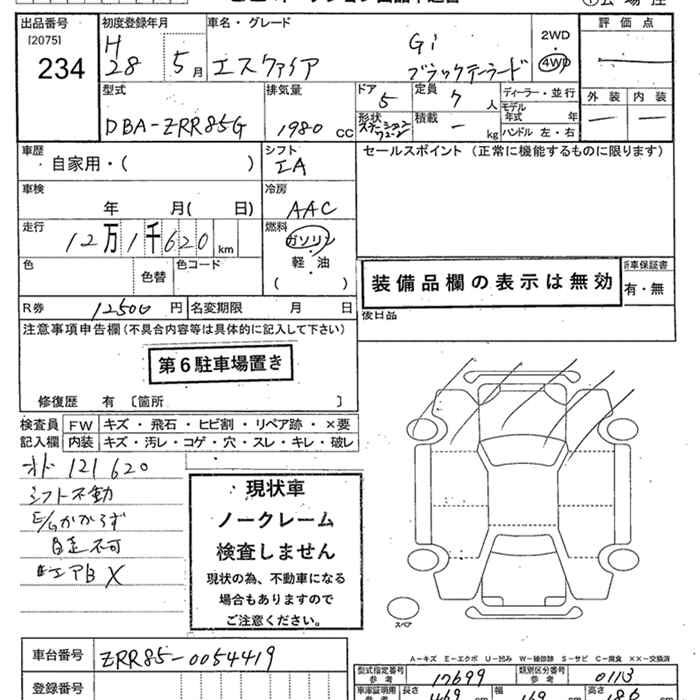 出品番号
[2075]
234
初度登録年月
H 28 5月
車名・グレード
エスクァイア Gi
ブラックテーラード
2WD
4WD
評価点
外装 内装
型式
DBA-ZRR85G
排気量
1980 CC
ドア
5
定員
7 人
形状
積載
kg
ディーラー・並行
モデル年式 年
ハンドル 左・右
車歴
自家用・( )
シフト
IA
セールスポイント (正常に機能するものに限ります)
車検
年 月( 日)
冷房
AAC
走行
12万1千620 km
燃料
ガソリン
軽・油
( )
色
色替
色コード
装備品欄の表示は無効
新車保証書
有・無
R券
12500 円
名変期限 月 日
後日品
注意事項申告欄(不具合内容等は具体的に記入して下さい)
第6駐車場置き
修復歴 有〔箇所 〕
検査員
記入欄
FW キズ・飛石・ヒビ割・リペア跡・×要
内装 キズ・汚レ・コゲ・穴・スレ・キレ・破レ
オド 121620
シフト不動
E/Gかからず
自走不可
エアB X
現状車
ノークレーム
検査しません
現状の為、不動車になる
場合もありますので
ご注意ください。
スペア
車台番号
ZRR85-0054419
登録番号
A-キズ E-エクボ U-凹み W-補修跡 S-サビ C-腐食 ××-交換済
型式指定番号
参考
17699
類別区分番号
参考
0113
車庫証明用
参考
長さ
469 cm
幅
169 cm
高さ
186 cm